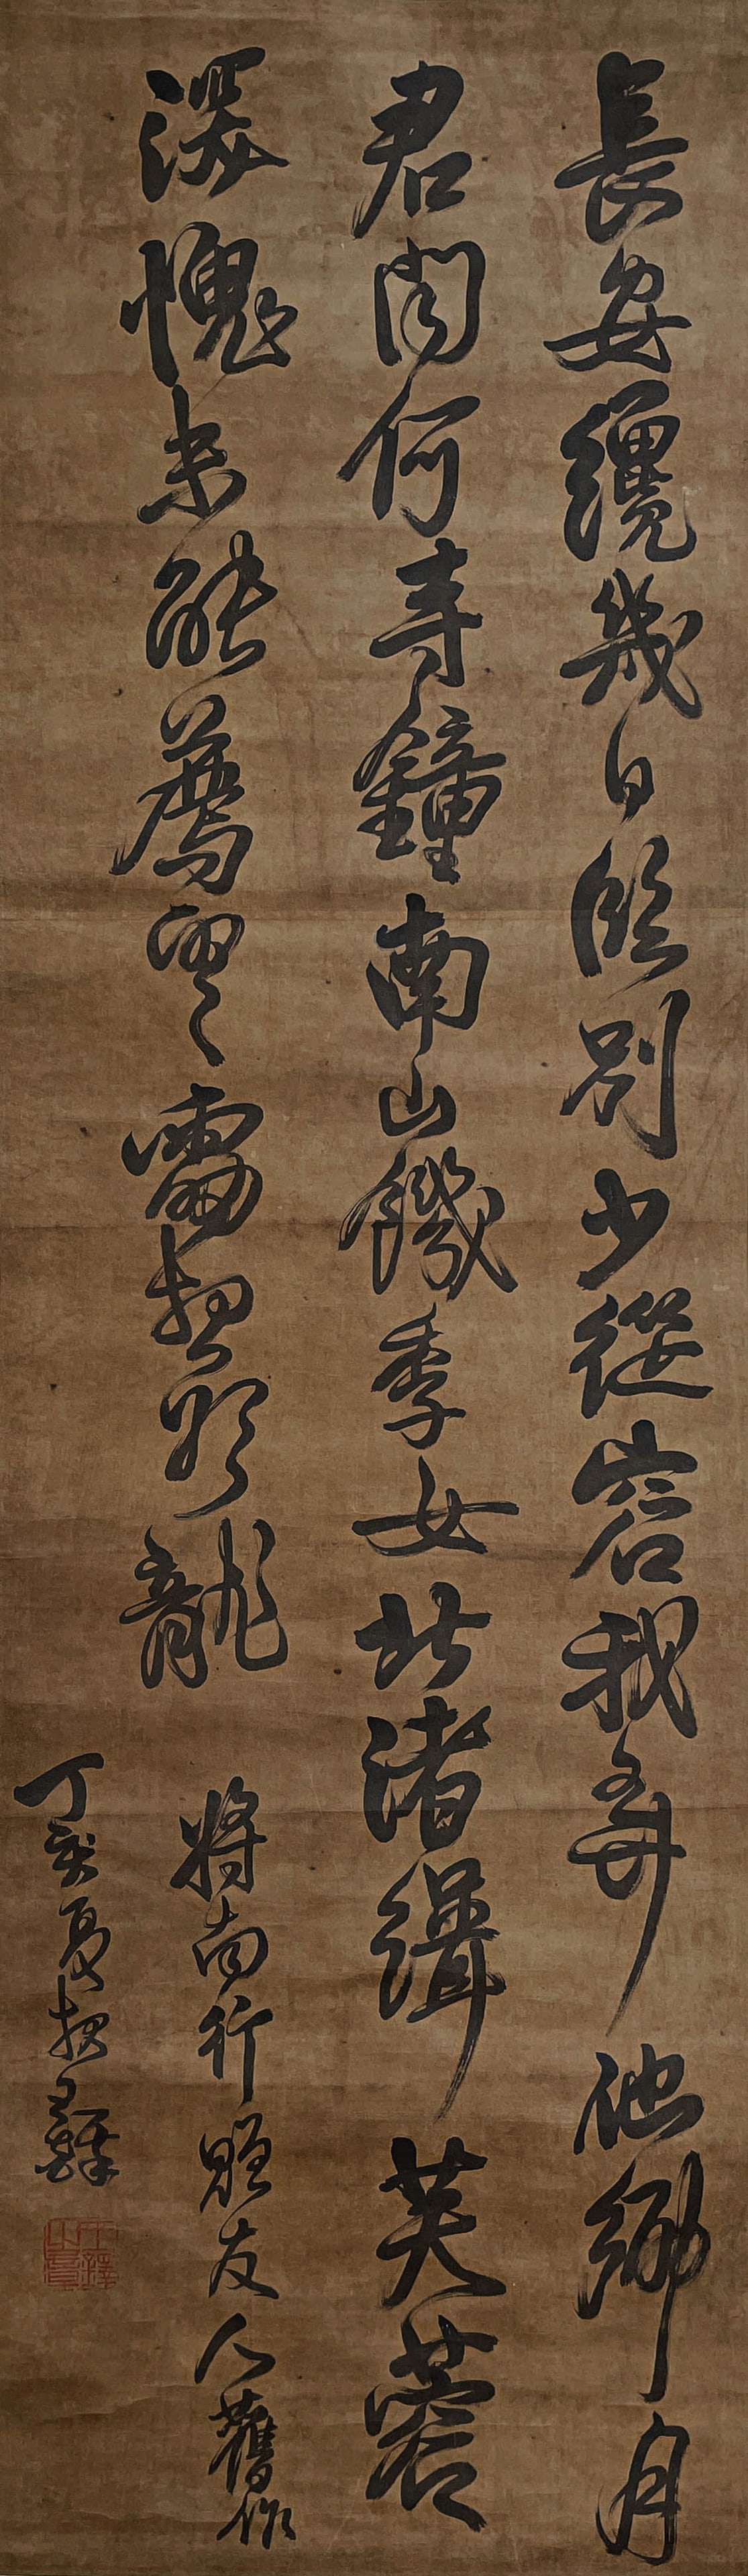 長安纔幾日臨別少從容我弄他鄉月
君聞何寺鐘南山饑季女北渚緝芙蓉
深愧未能薦 龍
將南行贈友人舊作
丁亥夏杪王鐸
王鐸之印